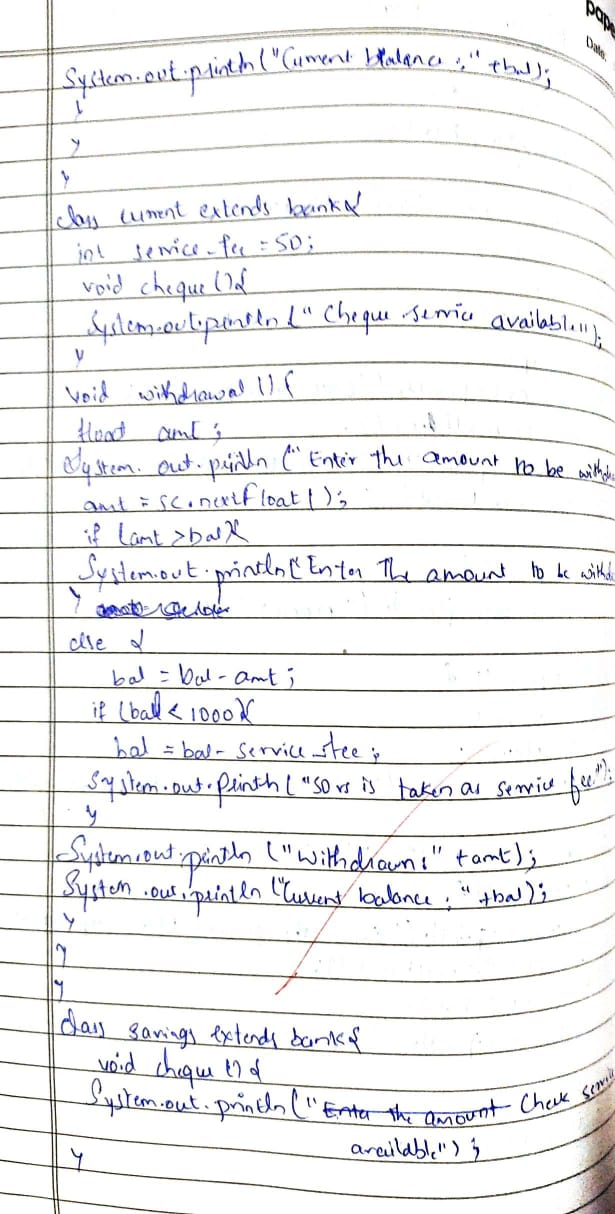 pape
Date:
System.out.println("Current balance :" +bal);
}
}
}
class current extends bank{
int service_fee = 50;
void cheque (){
System.out.println (" Cheque service available");
}
void withdrawal () {
float amt ;
System. out. println (" Enter the amount to be withd
amt = sc.nextFloat( );
if (amt >bal){
System.out.println(" Enter The amount to be withd
}
else {
bal = bal - amt ;
if (bal < 1000){
bal = bal - service_fee ;
System.out.println ( "50 rs is taken as service fee");
}
System.out.println ("Withdrawn:" +amt);
System.out.println ("Current balance : " +bal);
}
}
}
class savings extends bank{
void cheque () {
System.out.println (" Enter the amount Check servi
available") ;
}